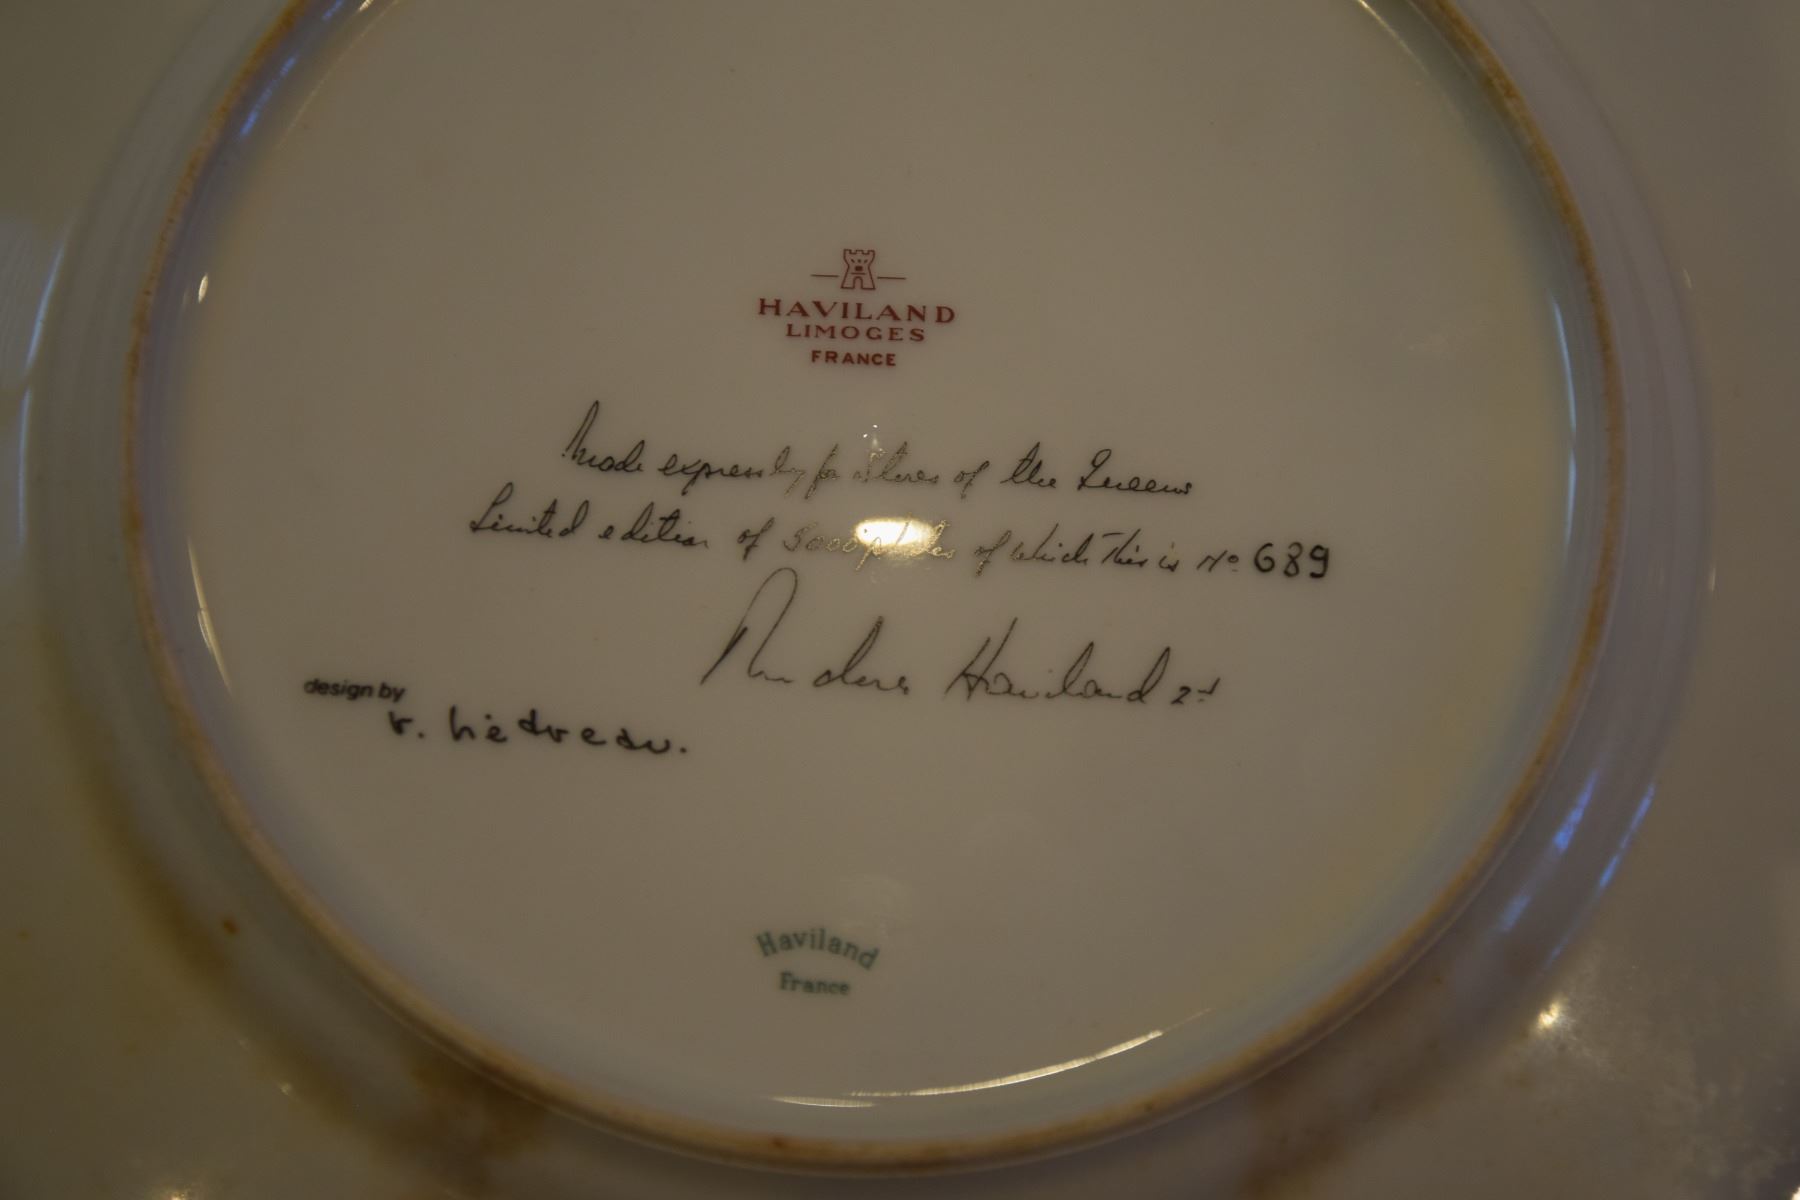 HAVILAND
LIMOGES
FRANCE
Made expressly for Stores of the Queens
Limited edition of 5000 plates of which this is No 689
Haviland 2d
design by
Haviland
France